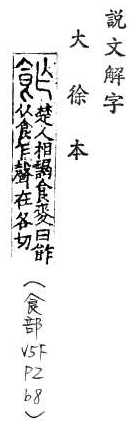 説文解字
大徐本
飵
楚人相謁食麥曰飵
从食乍聲在各切
（食部 V5F P2 b8）